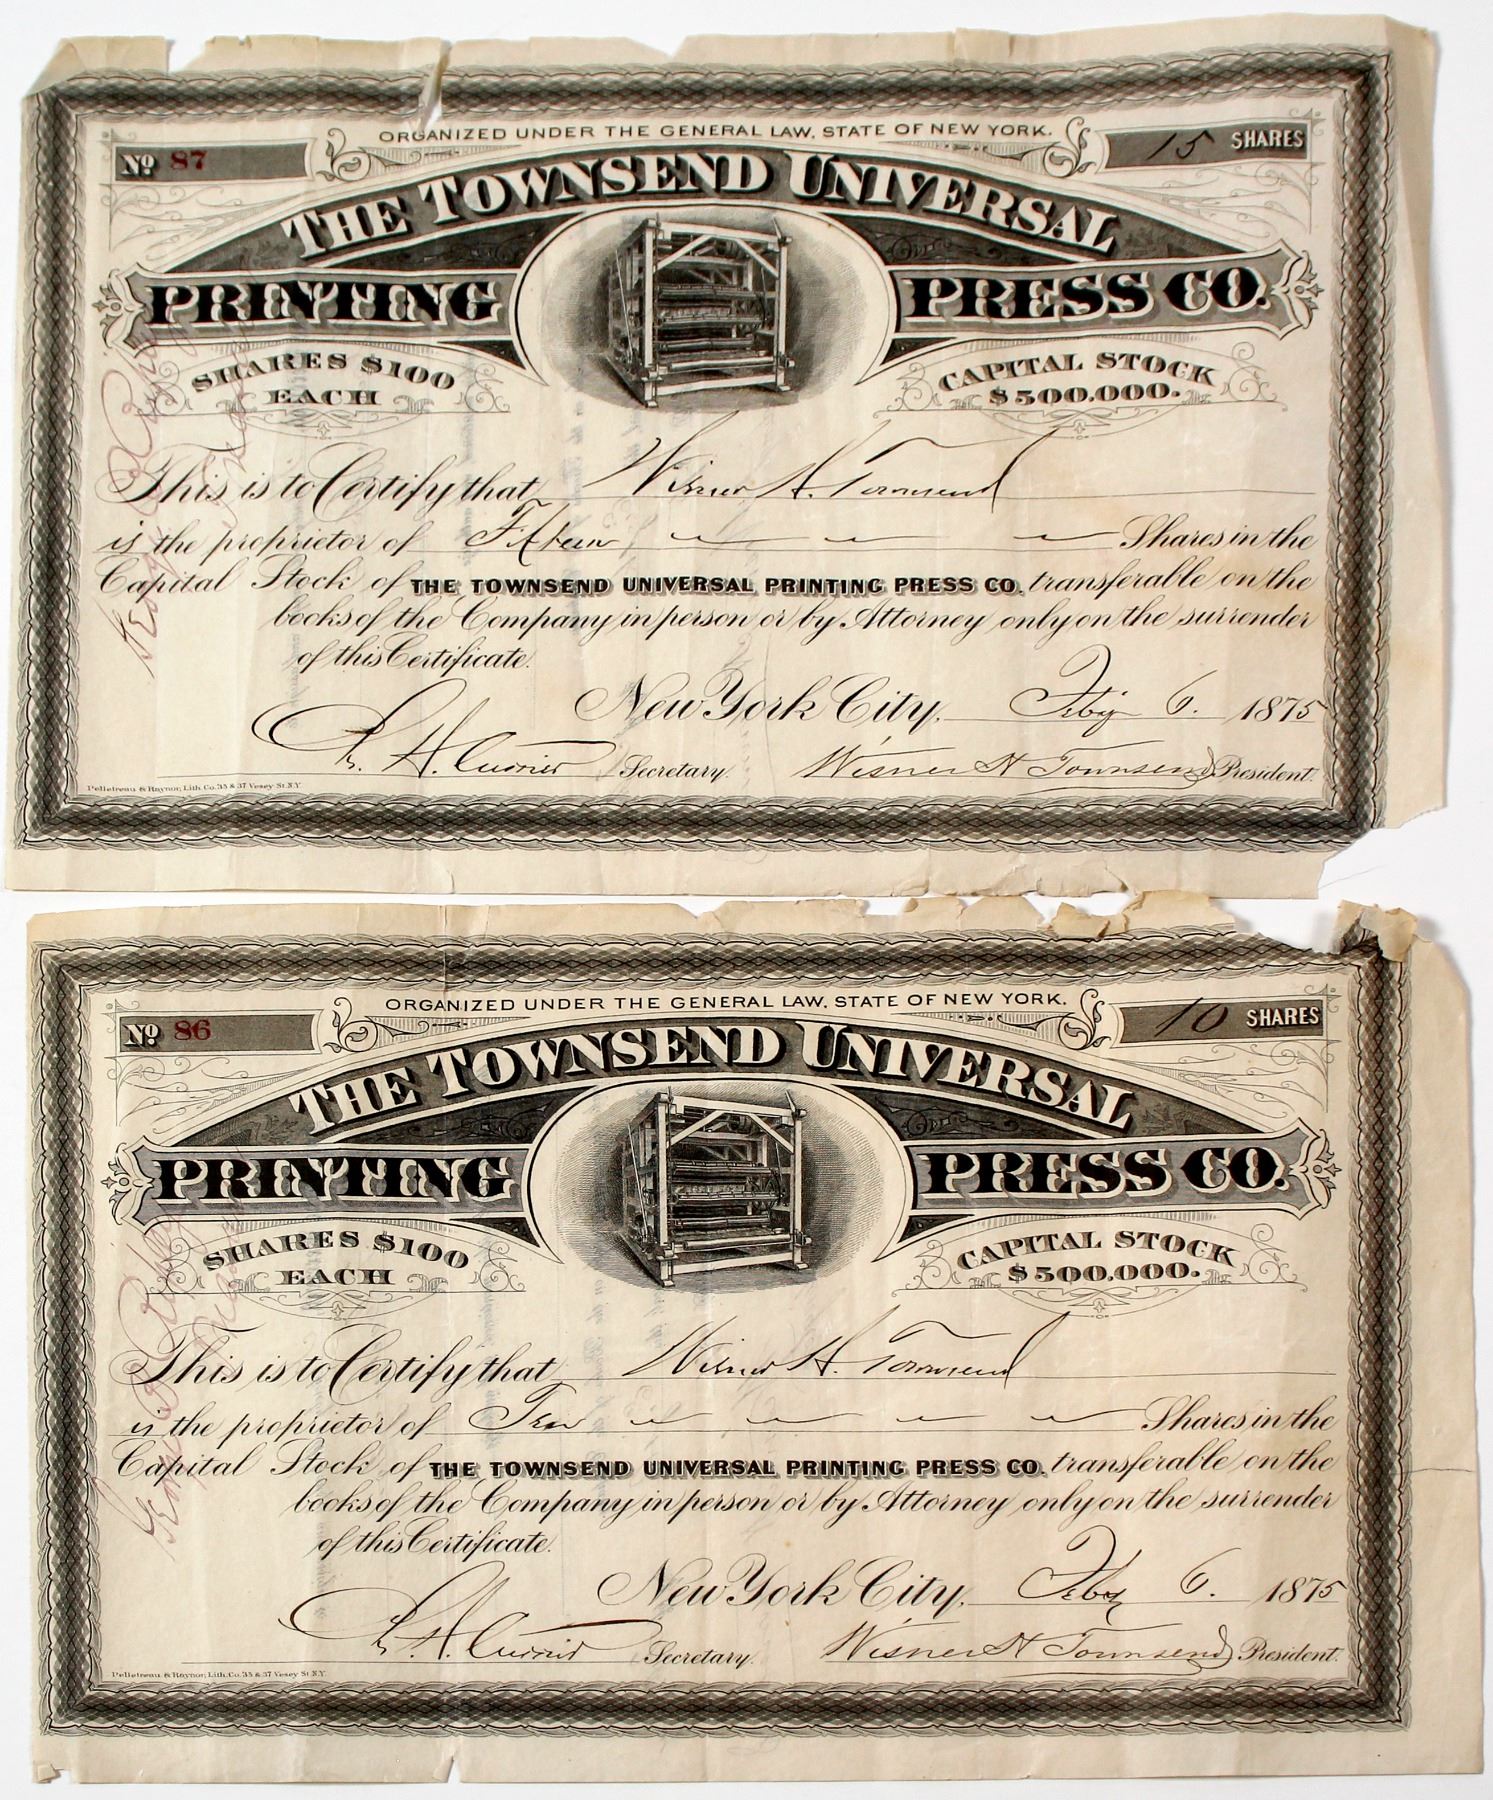 ORGANIZED UNDER THE GENERAL LAW, STATE OF NEW YORK.
No 87
15 SHARES
THE TOWNSEND UNIVERSAL
PRINTING PRESS CO.
SHARES $100
EACH
CAPITAL STOCK
$500.000.
This is to Certify that Wisner H. Townsend
is the proprietor of Fifteen Shares in the
Capital Stock of THE TOWNSEND UNIVERSAL PRINTING PRESS CO. transferable on the
books of the Company in person or by Attorney only on the surrender
of this Certificate.
New York City, Feby 6. 1875
H. Currier Secretary. Wisner H Townsend President.
Pelletreau & Raynor, Lith. Co. 35 & 37 Vesey St. N.Y.
ORGANIZED UNDER THE GENERAL LAW, STATE OF NEW YORK.
No 86
10 SHARES
THE TOWNSEND UNIVERSAL
PRINTING PRESS CO.
SHARES $100
EACH
CAPITAL STOCK
$500.000.
This is to Certify that Wisner H. Townsend
is the proprietor of Ten Shares in the
Capital Stock of THE TOWNSEND UNIVERSAL PRINTING PRESS CO. transferable on the
books of the Company in person or by Attorney only on the surrender
of this Certificate.
New York City, Feby 6. 1875
H. Currier Secretary. Wisner H Townsend President.
Pelletreau & Raynor, Lith. Co. 35 & 37 Vesey St. N.Y.